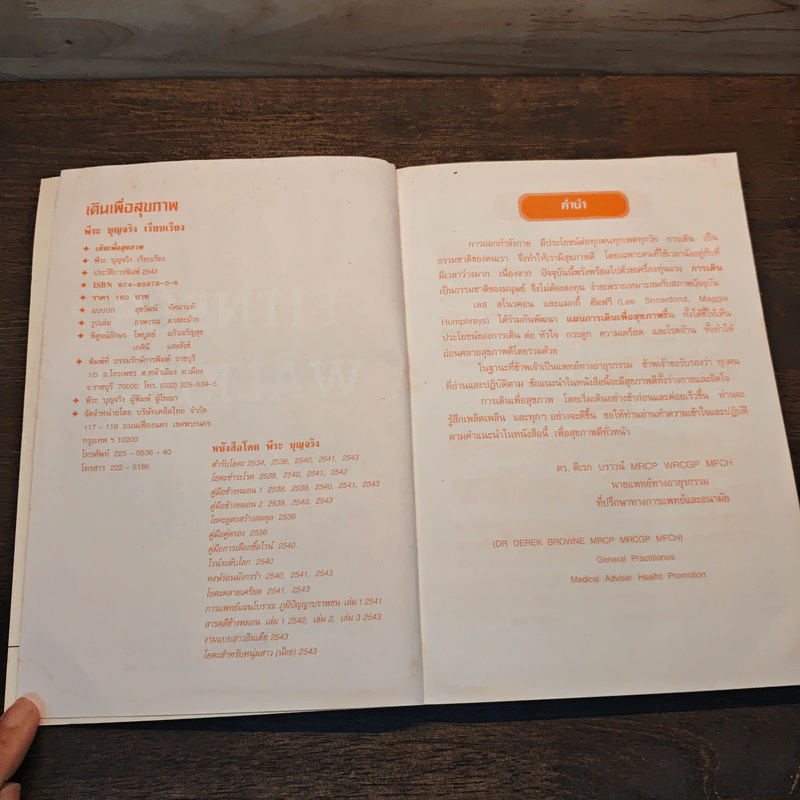 เดินเพื่อสุขภาพ
พีระ บุญจริง เรียบเรียง
เดินเพื่อสุขภาพ
พีระ บุญจริง เรียบเรียง
ประวัติการพิมพ์ 2543
ISBN 974-85978-0-6
ราคา 160 บาท
แบบปก สุขวัฒน์ ทัศนาแท้
รูปเล่ม อาพรรณ ดวงละม้าย
พิสูจน์อักษร ไพบูลย์ แก้วเจริญสุข
เกศินี แสงสังข์
พิมพ์ที่ ธรรมรักษ์การพิมพ์ ราชบุรี
1/5 ถ.ไกรเพชร ต.หน้าเมือง อ.เมือง
จ.ราชบุรี 70000 โทร. (032) 325-534-5
พีระ บุญจริง ผู้พิมพ์ ผู้โฆษณา
จัดจำหน่ายโดย บริษัทเคล็ดไทย จำกัด
117 - 119 ถนนเฟื่องนคร เขตพระนคร
กรุงเทพ ฯ 10200
โทรศัพท์ 225 - 9536 - 40
โทรสาร 222 - 5186
หนังสือโดย พีระ บุญจริง
ตำรับโยคะ 2534, 2536, 2540, 2541, 2543
โยคะชำระโรค 2538, 2540, 2541, 2542
คู่มือข้างหมอน 1 2538, 2539, 2540, 2541, 2543
คู่มือข้างหมอน 2 2539, 2540, 2543
โยคะสูตรสร้างสมดุล 2536
คู่มือคู่ครอง 2536
คู่มือการเลือกซื้อไวน์ 2540
ไวน์ระดับโลก 2540
หงษ์ร่อนมังกรรำ 2540, 2541, 2543
โยคะคลายเครียด 2541, 2543
การแพทย์แผนโบราณ ภูมิปัญญาบรรพชน เล่ม 1 2541
สารคดีข้างหมอน เล่ม 1 2542, เล่ม 2, เล่ม 3 2543
งามแบบสาวอินเดีย 2543
โยคะสำหรับหนุ่มสาว (น้อย) 2543
คำนำ
การออกกำลังกาย มีประโยชน์ต่อทุกคนทุกเพศทุกวัย การเดิน เป็น
ธรรมชาติของคนเรา จึงทำให้เรามีสุขภาพดี โดยเฉพาะคนที่ใช้เวลานั่งอยู่กับที่
มีเวลาว่างมาก เนื่องจาก ปัจจุบันนี้พรั่งพร้อมไปด้วยเครื่องทุ่นแรง การเดิน
เป็นธรรมชาติของมนุษย์ จึงไม่ต้องลงทุน ง่ายเพราะเหมาะสมกับสภาพปัจจุบัน
เลส สโนวดอน และแมกกี้ ฮัมฟรี (Les Snowdond, Maggie
Humphreys) ได้ร่วมกันพัฒนา แผนการเดินเพื่อสุขภาพขึ้น ทั้งได้ชี้ให้เห็น
ประโยชน์ของการเดิน ต่อ หัวใจ กระดูก ความเครียด และโรคอ้วน ทั้งทำให้
ผ่อนคลายสุขภาพดีโดยรวมด้วย
ในฐานะที่ข้าพเจ้าเป็นแพทย์ทางอายุรกรรม ข้าพเจ้าขอรับรองว่า ทุกคน
ที่อ่านและปฏิบัติตาม ข้อแนะนำในหนังสือนี้จะมีสุขภาพดีทั้งร่างกายและจิตใจ
การเดินเพื่อสุขภาพ โดยเริ่มเดินอย่างช้าก่อนและค่อยเร็วขึ้น ท่านจะ
รู้สึกเพลิดเพลิน และทุกๆ อย่างจะดีขึ้น ขอให้ท่านอ่านทำความเข้าใจและปฏิบัติ
ตามคำแนะนำในหนังสือนี้ เพื่อสุขภาพดีทั่วหน้า
ดร. ดิเรก บราวน์ MRCP WRCGP MFCH
นายแพทย์ทางอายุรกรรม
ที่ปรึกษาทางการแพทย์และอนามัย
(DR DEREK BROWNE MRCP MRCGP MFCH)
General Practitiones
Medical Adviser Healht Promotion